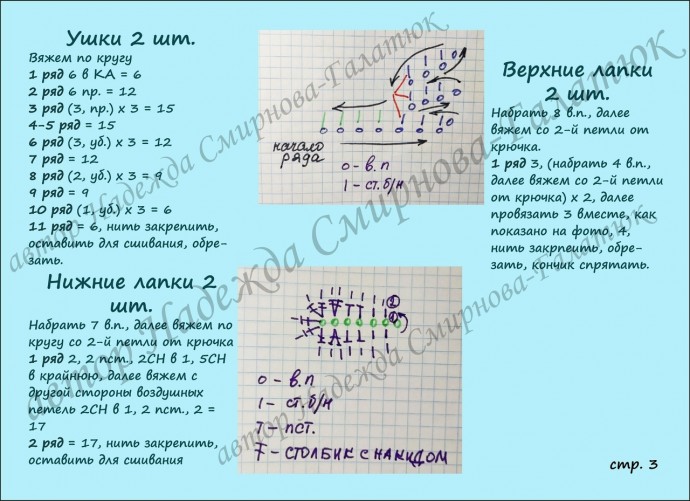 Ушки 2 шт.
Вяжем по кругу
1 ряд 6 в КА = 6
2 ряд 6 пр. = 12
3 ряд (3, пр.) х 3 = 15
4-5 ряд = 15
6 ряд (3, уб.) х 3 = 12
7 ряд = 12
8 ряд (2, уб.) х 3 = 9
9 ряд = 9
10 ряд (1, уб.) х 3 = 6
11 ряд = 6, нить закрепить,
оставить для сшивания, обре-
зать.
Нижние лапки 2
шт.
Набрать 7 в.п., далее вяжем по
кругу со 2-й петли от крючка
1 ряд 2, 2 пст., 2СН в 1, 5СН
в крайнюю, далее вяжем с
другой стороны воздушных
петель 2СН в 1, 2 пст., 2 =
17
2 ряд = 17, нить закрепить,
оставить для сшивания
начало
ряда
0 - в.п
1 - ст.б/н
0 - в.п
1 - ст.б/н
Т - пст.
F - СТОЛБИК С НАКИДОМ
Верхние лапки
2 шт.
Набрать 8 в.п., далее
вяжем со 2-й петли от
крючка.
1 ряд 3, (набрать 4 в.п.,
далее вяжем со 2-й петли
от крючка) х 2, далее
провязать 3 вместе, как
показано на фото, 4,
нить закрпеить, обре-
зать, кончик спрятать.
стр. 3
автор Надежда Смирнова-Галатюк
автор Надежда Смирнова-Галатюк
автор Надежда Смирнова-Галатюк